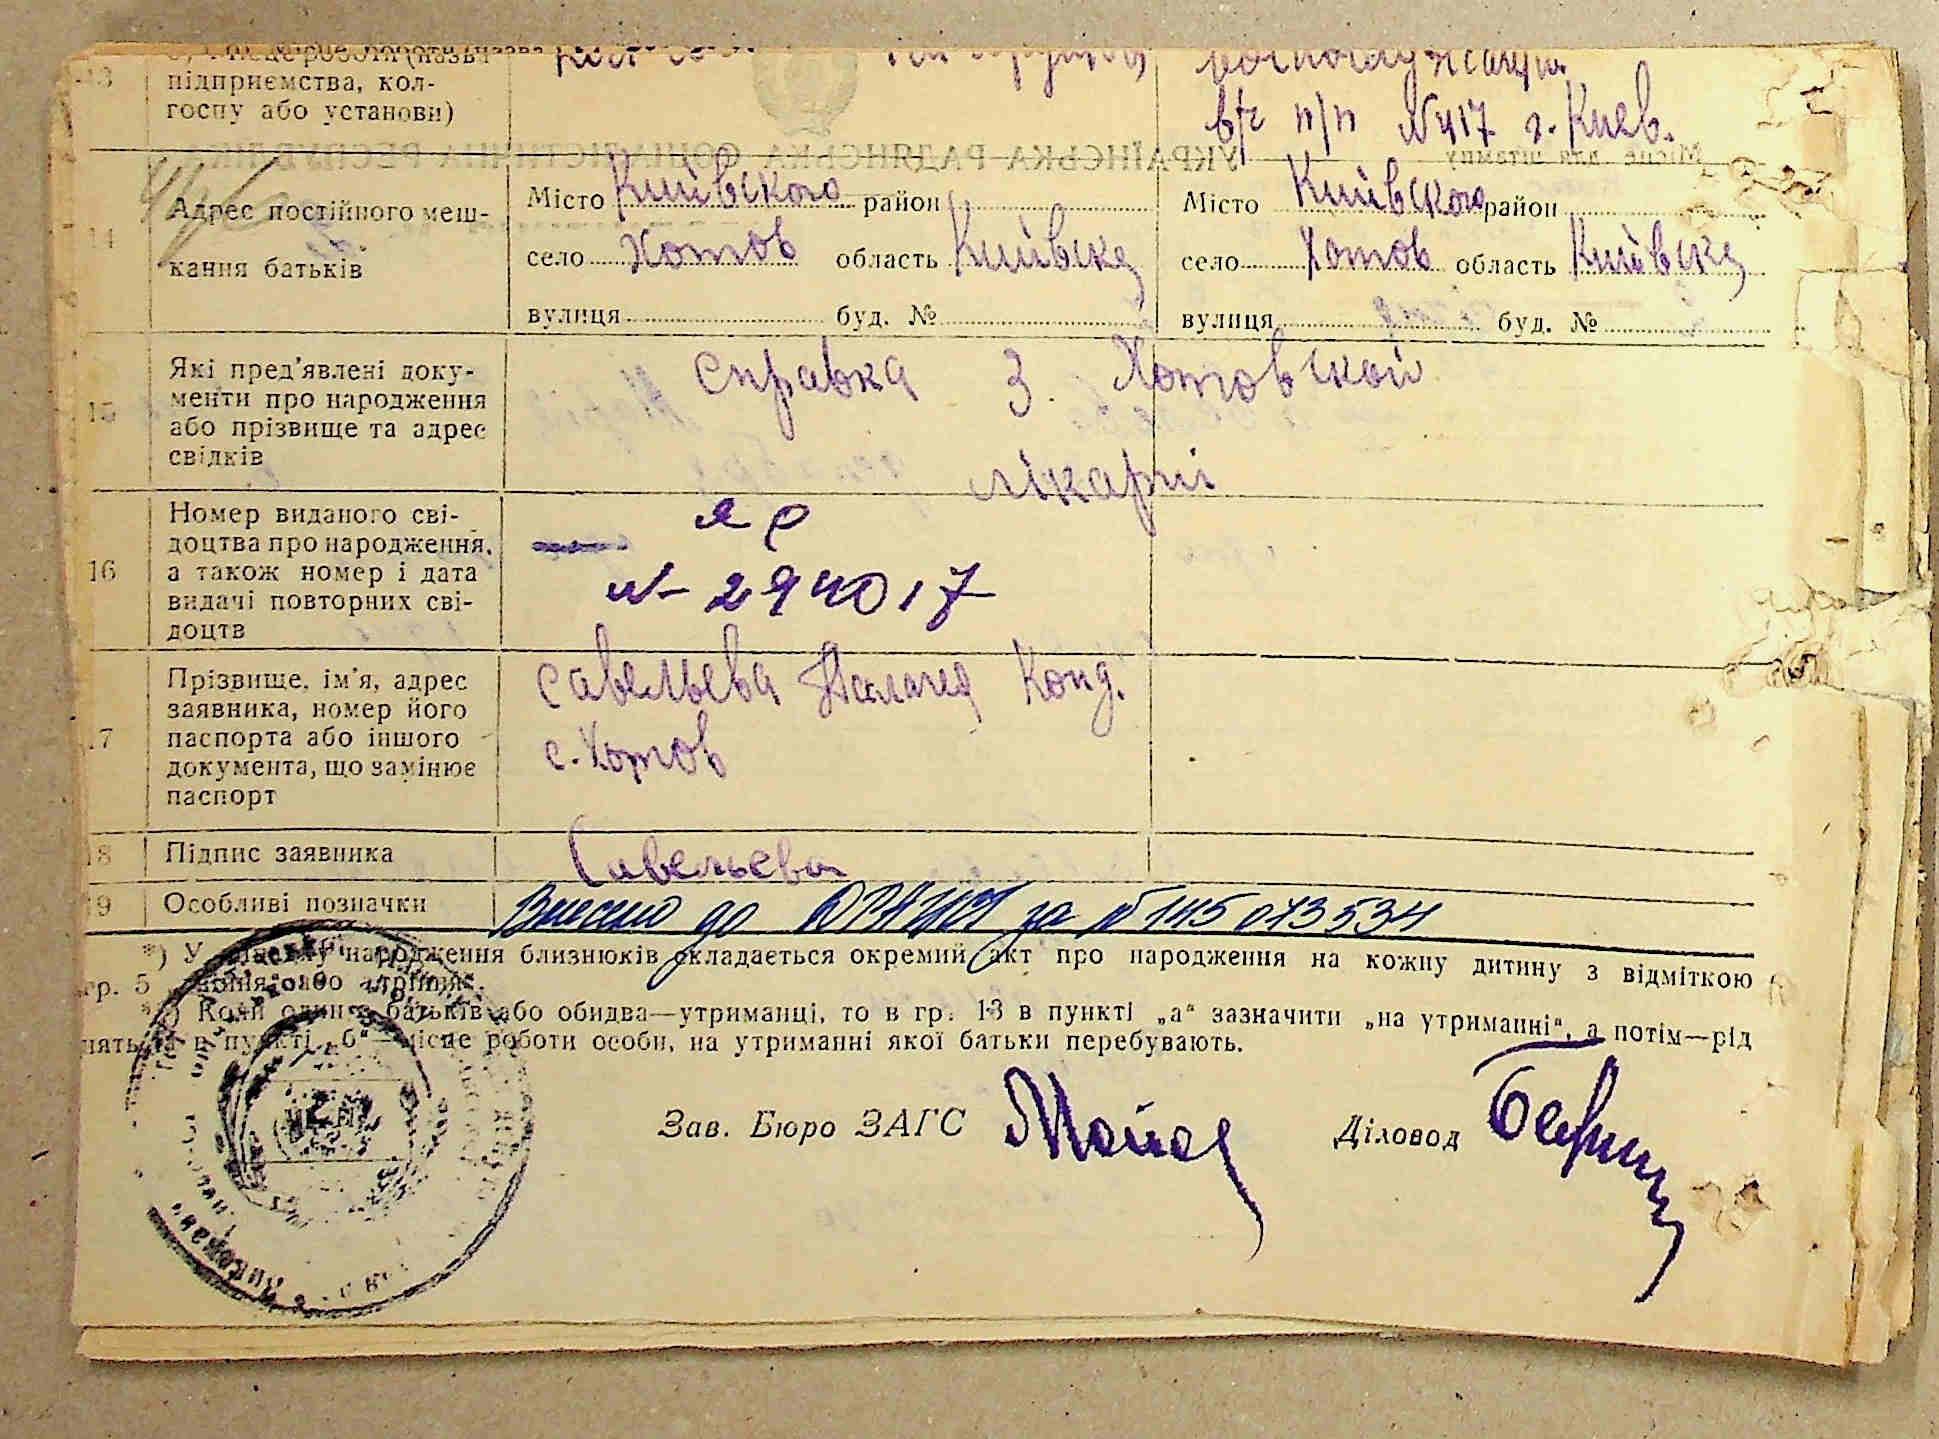 підприємства, кол-
госпу або установи)
в/ч п/п №417 г. Киев.
14
Адрес постійного меш-
кання батьків
Місто Київского район
село Хотов область Київска
вулиця буд. №
Місто Київского район
село Хотов область Київска
вулиця буд. №
15
Які пред'явлені доку-
менти про народження
або прізвище та адрес
свідків
Справка з Хотовской
лікарні
16
Номер виданого сві-
доцтва про народження,
а також номер і дата
видачі повторних сві-
доцтв
ЯР
№ 294017
17
Прізвище, ім'я, адрес
заявника, номер його
паспорта або іншого
документа, що замінює
паспорт
Савельева Конд.
с. Хотов
18
Підпис заявника
Савельева
19
Особливі позначки
Внесено до ДРАЦСГ за №
*) У випадку народження близнюків складається окремий акт про народження на кожну дитину з відміткою
гр. 5
Коли один з батьків або обидва—утриманці, то в гр. 13 в пункті „а“ зазначити „на утриманні“, а потім—рід
в пункті „б“—місце роботи особи, на утриманні якої батьки перебувають.
Зав. Бюро ЗАГС
Діловод